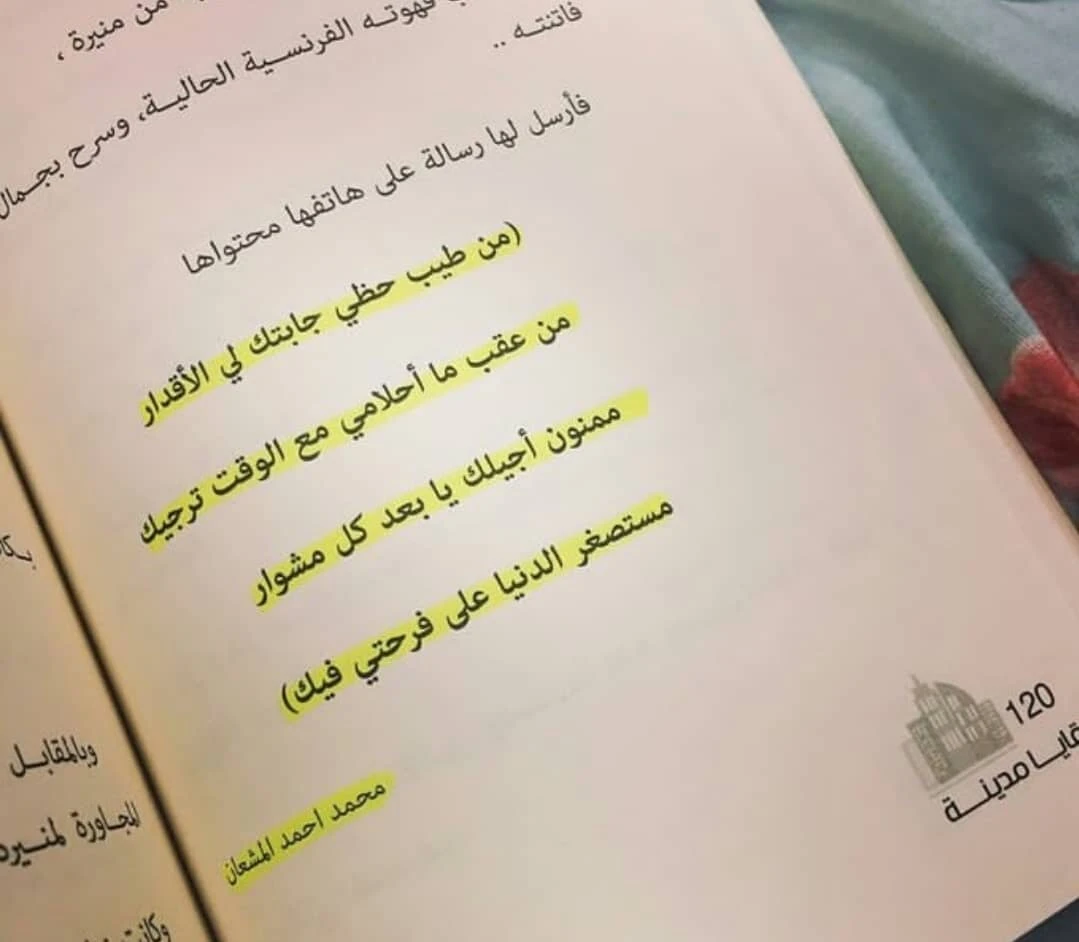 من منيرة ،
قهوته الفرنسية الحالية، وسرح بجمال
فاتنته ..
فأرسل لها رسالة على هاتفها محتواها
(من طيب حظي جابتك لي الأقدار
من عقب ما أحلامي مع الوقت ترجيك
ممنون أجيلك يا بعد كل مشوار
مستصغر الدنيا على فرحتي فيك)
محمد احمد المشعان
120
مدينة
وبالمقابل
المجاورة لمنيرة